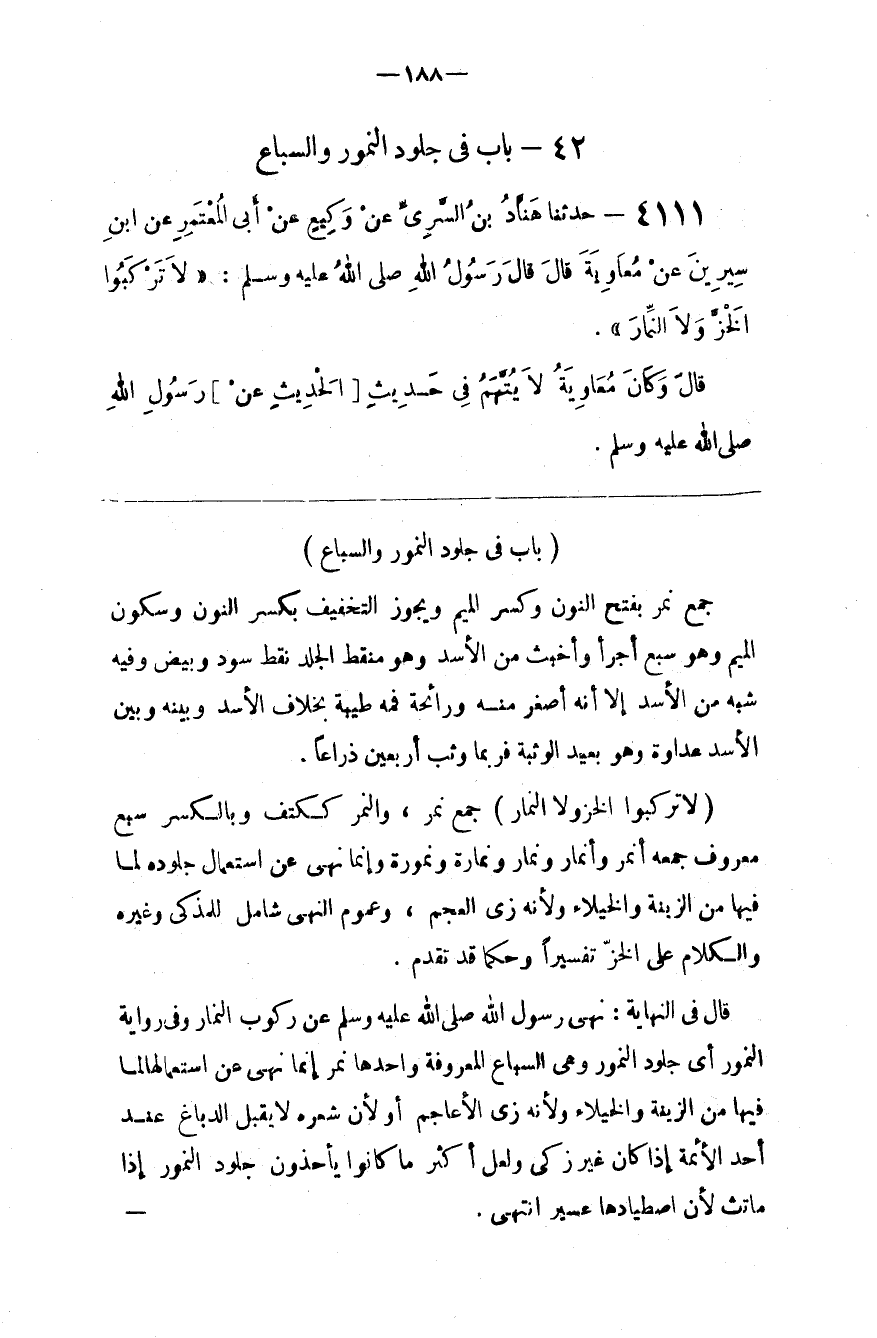 —١٨٨—
٤٢ — باب فى جلود النمور والسباع
٤١١١ — حدثنا هَنَّادُ بنُ السَّرِىِّ عنْ وَكِيعٍ عنْ أَبى المُعْتَمَرِ عن ابنِ
سِيرِينَ عنْ مُعَاوِيَةَ قالَ قالَ رَسُولُ اللهِ صلى اللهُ عليه وسلم : « لاَ تَرْكَبُوا
الْخَزَّ وَلاَ النِّمَارَ » .
قالَ وَكَانَ مُعَاوِيَةُ لاَ يُتَّهَمُ فِى حَدِيثِ [ الْحَدِيثِ عنْ ] رَسُولِ اللهِ
صلى الله عليه وسلم .
( باب فى جلود النمور والسباع )
جمع نمر بفتح النون وكسر الميم ويجوز التخفيف بكسر النون وسكون
الميم وهو سبع أجرأ وأخبث من الأسد وهو منقط الجلد نقط سود وبيض وفيه
شبه من الأسد إلا أنه أصغر منه ورائحة فمه طيبة بخلاف الأسد وبينه وبين
الأسد عداوة وهو بعيد الوثبة فربما وثب أربعين ذراعاً .
( لاتركبوا الخزولا النمار ) جمع نمر ، والنمر ككتف وبالكسر سبع
معروف جمعه أنمر وأنمار ونمار ونمارة ونمورة وإنما نهى عن استعمال جلوده لما
فيها من الزينة والخيلاء ولأنه زى العجم ، وعموم النهى شامل للمذكى وغيره
والكلام على الخزّ تفسيراً وحكما قد تقدم .
قال فى النهاية : نهى رسول الله صلى الله عليه وسلم عن ركوب النمار وفى رواية
النمور أى جلود النمور وهى السباع المعروفة واحدها نمر إنما نهى عن استعمالهالما
فيها من الزينة والخيلاء ولأنه زى الأعاجم أو لأن شعره لايقبل الدباغ عند
أحد الأئمة إذا كان غير زكى ولعل أكثر ما كانوا يأخذون جلود النمور إذا
ماتث لأن اصطيادها عسير انتهى . —